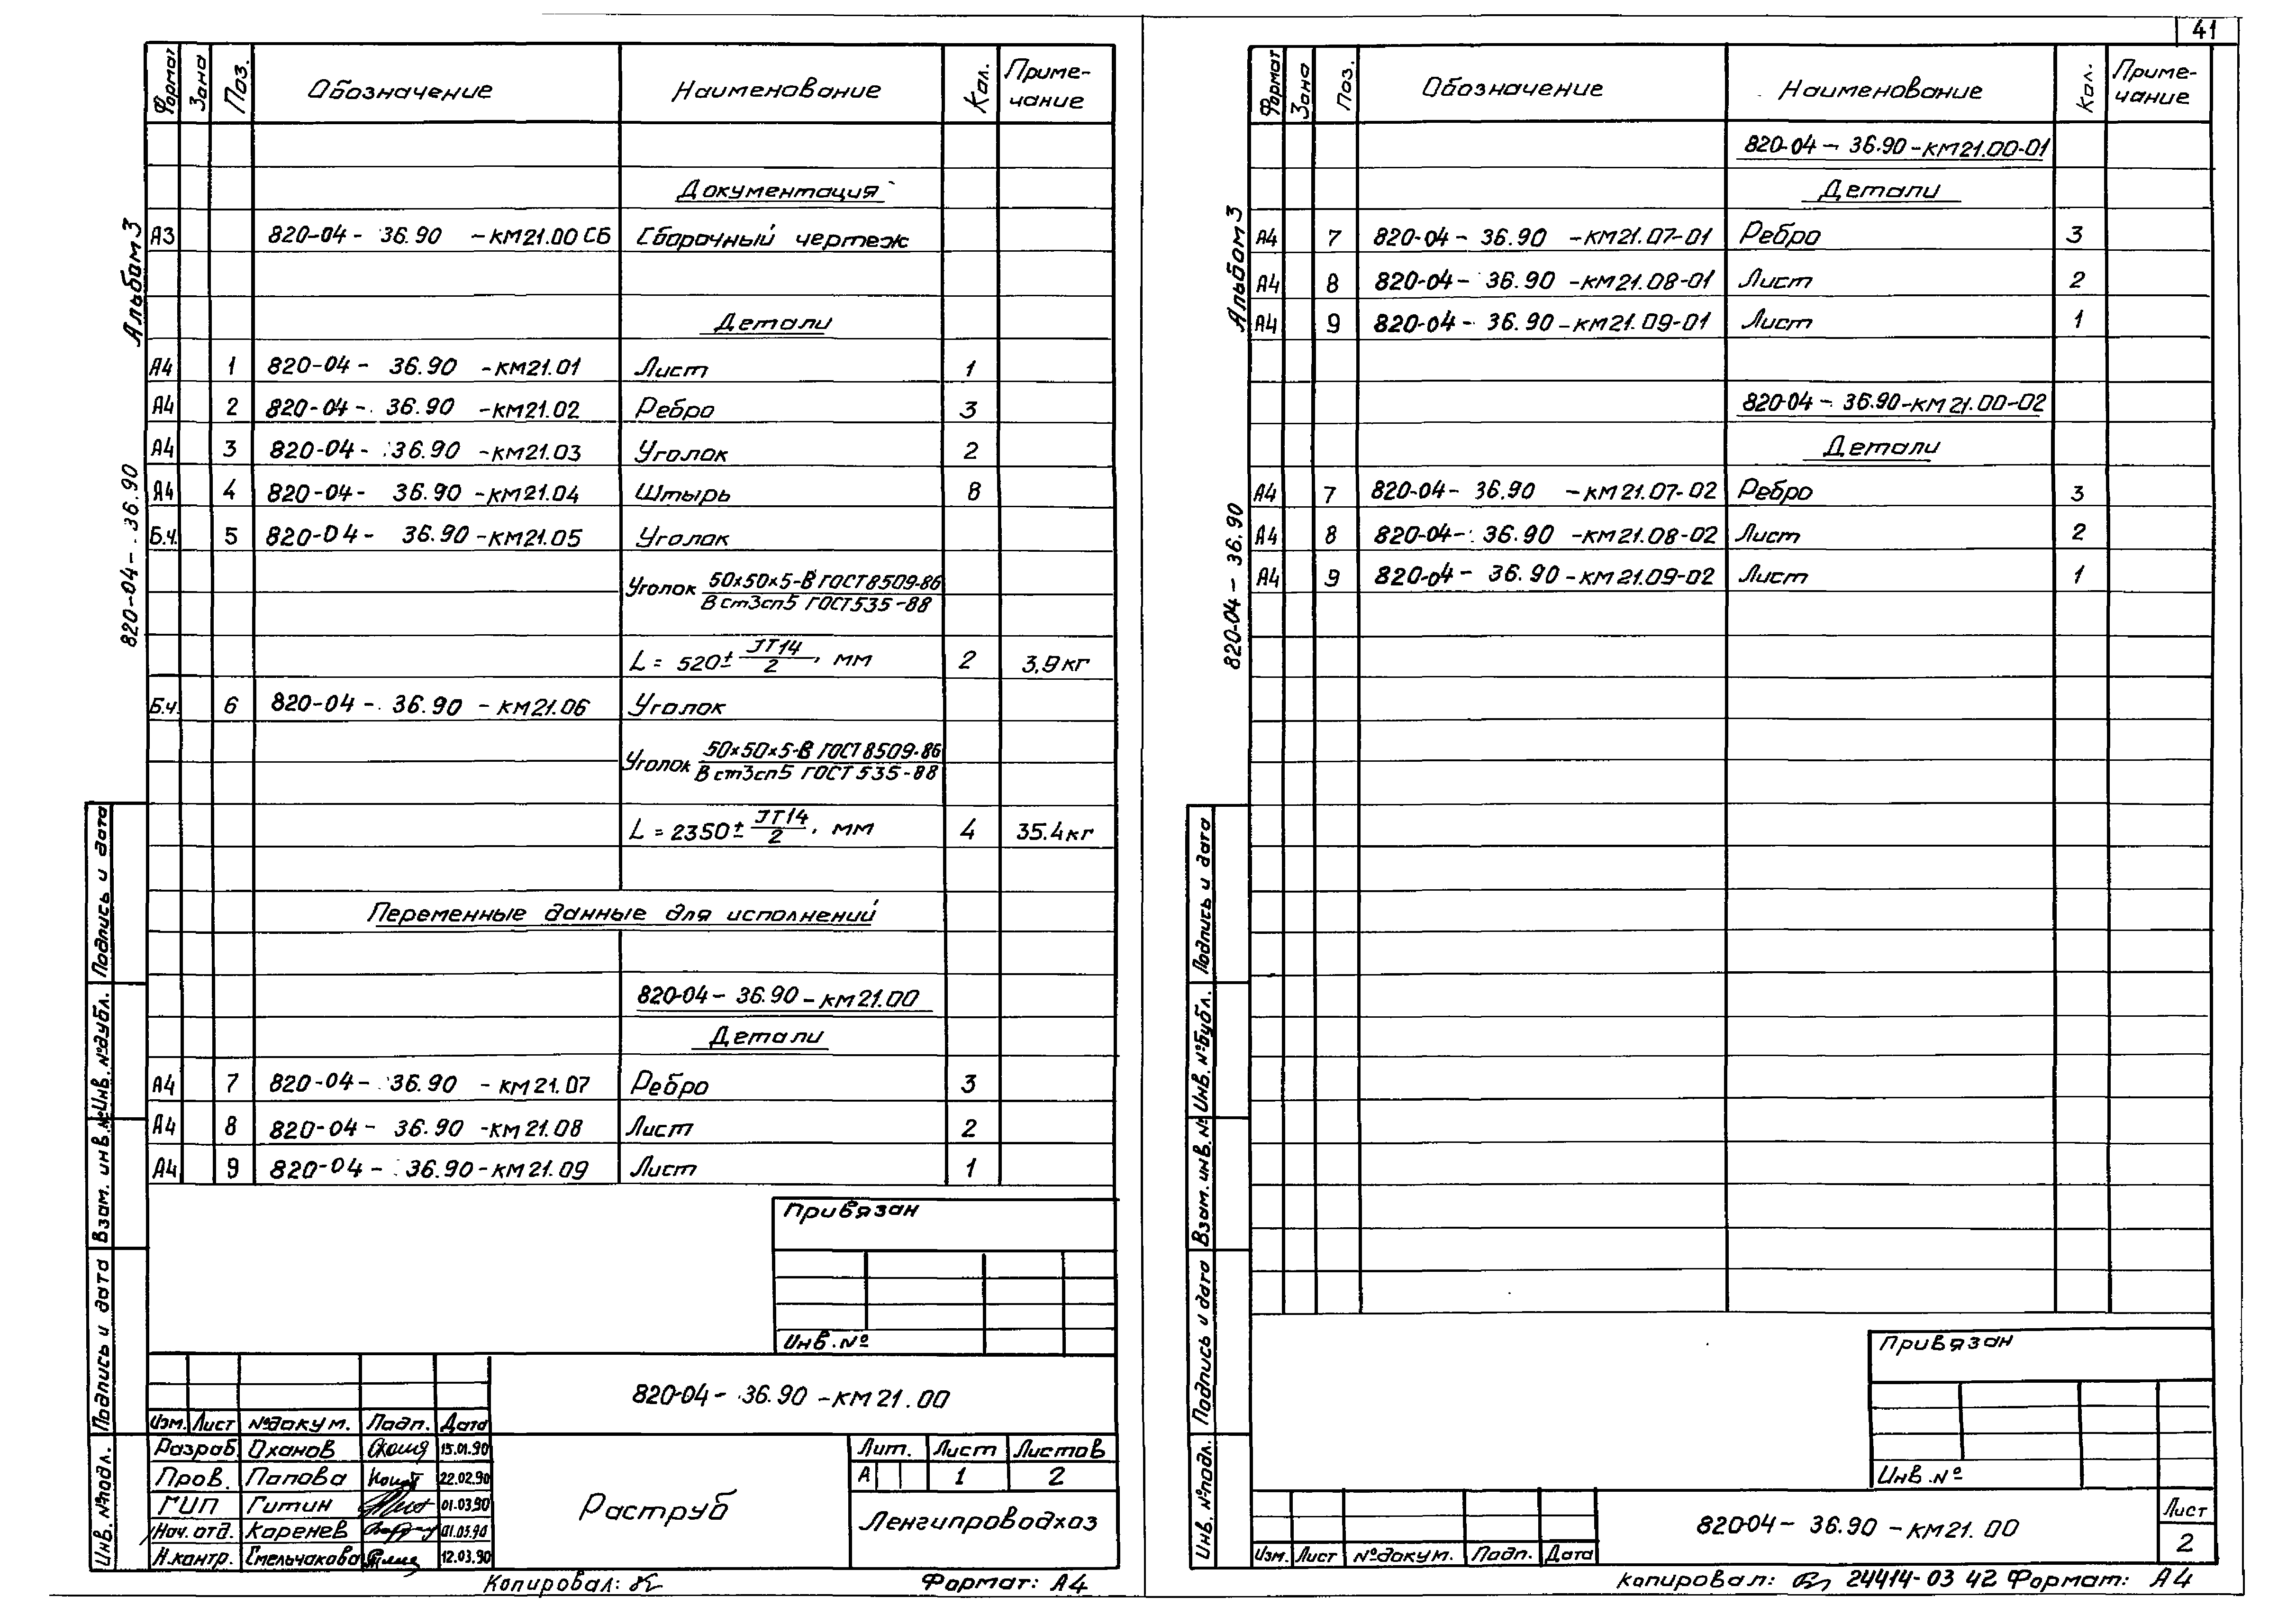 41
Альбом 3
820-04- 36.90
Формат Зона Поз. Обозначение Наименование Кол. Приме-
чание
Документация
А3 820-04- 36.90 -КМ21.00 СБ Сборочный чертеж
Детали
А4 1 820-04- 36.90 -КМ21.01 Лист 1
А4 2 820-04- 36.90 -КМ21.02 Ребро 3
А4 3 820-04- 36.90 -КМ21.03 Уголок 2
А4 4 820-04- 36.90 -КМ21.04 Штырь 8
Б.ч. 5 820-04- 36.90 -КМ21.05 Уголок
50х50х5-В ГОСТ 8509-86
Уголок
В ст3сп5 ГОСТ 535-88
L = 520 ± JT14/2, мм 2 3,9 кг
Б.ч. 6 820-04- 36.90 -КМ21.06 Уголок
50х50х5-В ГОСТ 8509-86
Уголок
В ст3сп5 ГОСТ 535-88
L = 2350 ± JT14/2, мм 4 35.4 кг
Переменные данные для исполнений
820-04- 36.90 -КМ21.00
Детали
А4 7 820-04- 36.90 -КМ21.07 Ребро 3
А4 8 820-04- 36.90 -КМ21.08 Лист 2
А4 9 820-04- 36.90 -КМ21.09 Лист 1
Подпись и дата
Инв. № дубл.
Взам. инв. №
Подпись и дата
Инв. № подл.
Привязан
Инв. №
820-04- 36.90 -КМ21.00
Изм. Лист № докум. Подп. Дата
Разраб. Оханов 15.01.90
Пров. Попова 22.02.90
ГИП Гитин 01.03.90
Нач. отд. Каренев 01.03.90
Н.контр. Смельчакова 12.03.90
Раструб
Лит. Лист Листов
А 1 2
Ленгипроводхоз
Копировал: Формат: А4
Альбом 3
820-04- 36.90
Формат Зона Поз. Обозначение Наименование Кол. Приме-
чание
820-04- 36.90 -КМ21.00-01
Детали
А4 7 820-04- 36.90 -КМ21.07-01 Ребро 3
А4 8 820-04- 36.90 -КМ21.08-01 Лист 2
А4 9 820-04- 36.90 -КМ21.09-01 Лист 1
820-04- 36.90 -КМ21.00-02
Детали
А4 7 820-04- 36.90 -КМ21.07-02 Ребро 3
А4 8 820-04- 36.90 -КМ21.08-02 Лист 2
А4 9 820-04- 36.90 -КМ21.09-02 Лист 1
Подпись и дата
Инв. № дубл.
Взам. инв. №
Подпись и дата
Инв. № подл.
Привязан
Инв. №
820-04- 36.90 -КМ21.00
Лист
2
Изм. Лист № докум. Подп. Дата
Копировал: 24414-03 42 Формат: А4